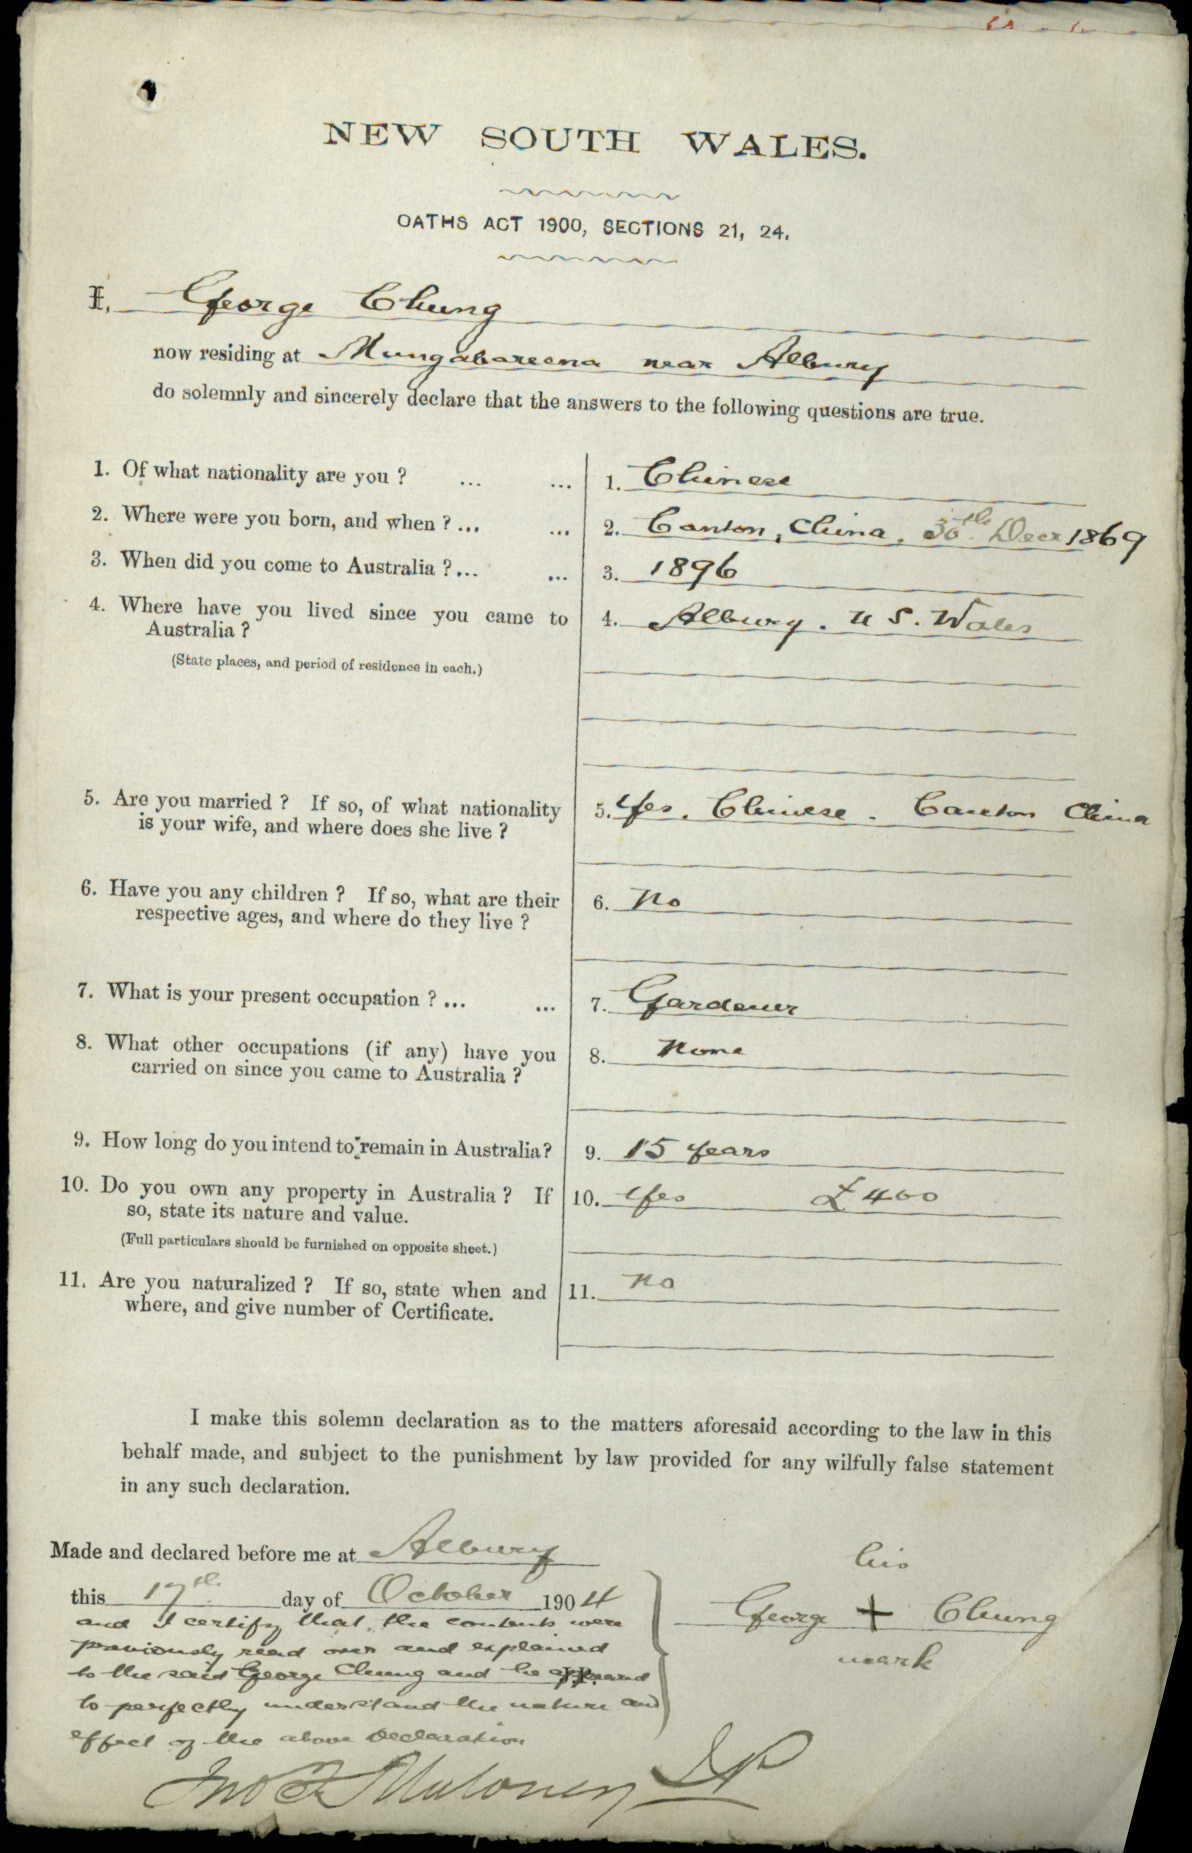 NEW SOUTH WALES.
OATHS ACT 1900, SECTIONS 21, 24.
I, George Chung
now residing at Mungabareena near Albury
do solemnly and sincerely declare that the answers to the following questions are true.
1. Of what nationality are you ? ... ... 1. Chinese
2. Where were you born, and when ? ... ... 2. Canton, China, 30th Decr 1869
3. When did you come to Australia ? ... ... 3. 1896
4. Where have you lived since you came to 4. Albury. N S. Wales
Australia ?
(State places, and period of residence in each.)
5. Are you married ? If so, of what nationality 5. Yes. Chinese. Canton China
is your wife, and where does she live ?
6. Have you any children ? If so, what are their 6. No
respective ages, and where do they live ?
7. What is your present occupation ? ... ... 7. Gardener
8. What other occupations (if any) have you 8. None
carried on since you came to Australia ?
9. How long do you intend to remain in Australia? 9. 15 years
10. Do you own any property in Australia ? If 10. Yes £400
so, state its nature and value.
(Full particulars should be furnished on opposite sheet.)
11. Are you naturalized ? If so, state when and 11. No
where, and give number of Certificate.
I make this solemn declaration as to the matters aforesaid according to the law in this
behalf made, and subject to the punishment by law provided for any wilfully false statement
in any such declaration.
Made and declared before me at Albury
this 17th day of October 1904
and I certify that the contents were
previously read over and explained
to the said George Chung and he appeared
to perfectly understand the nature and
effect of the above Declaration
his
George + Chung
mark
Jno F Maloney JP